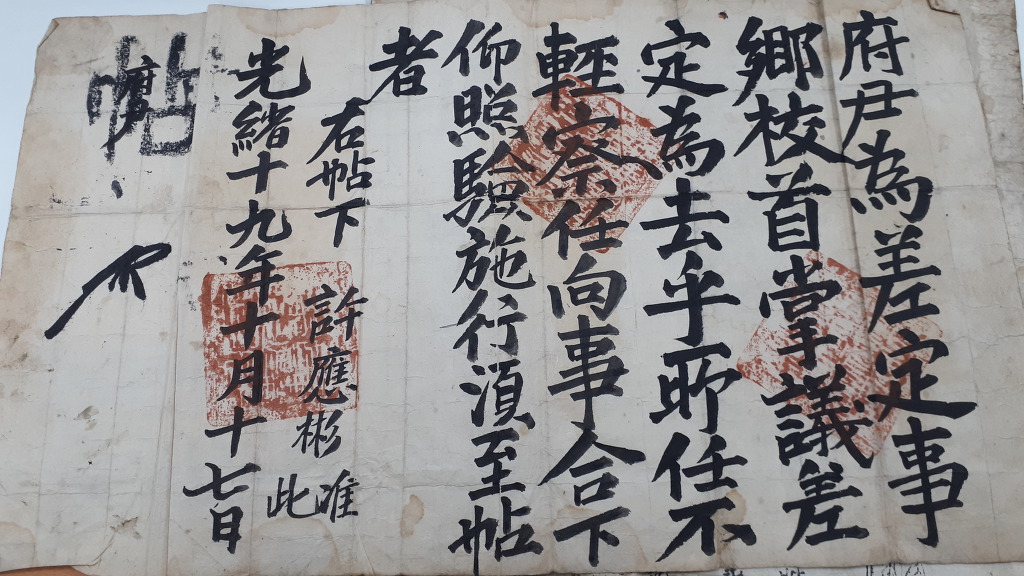 府尹為差定事
鄉校首掌議差
定為去乎所任不
輕察任向事合下
仰照驗施行須至帖
者
右帖下 許應彬 准此
光緖十九年十月十七日
帖
府